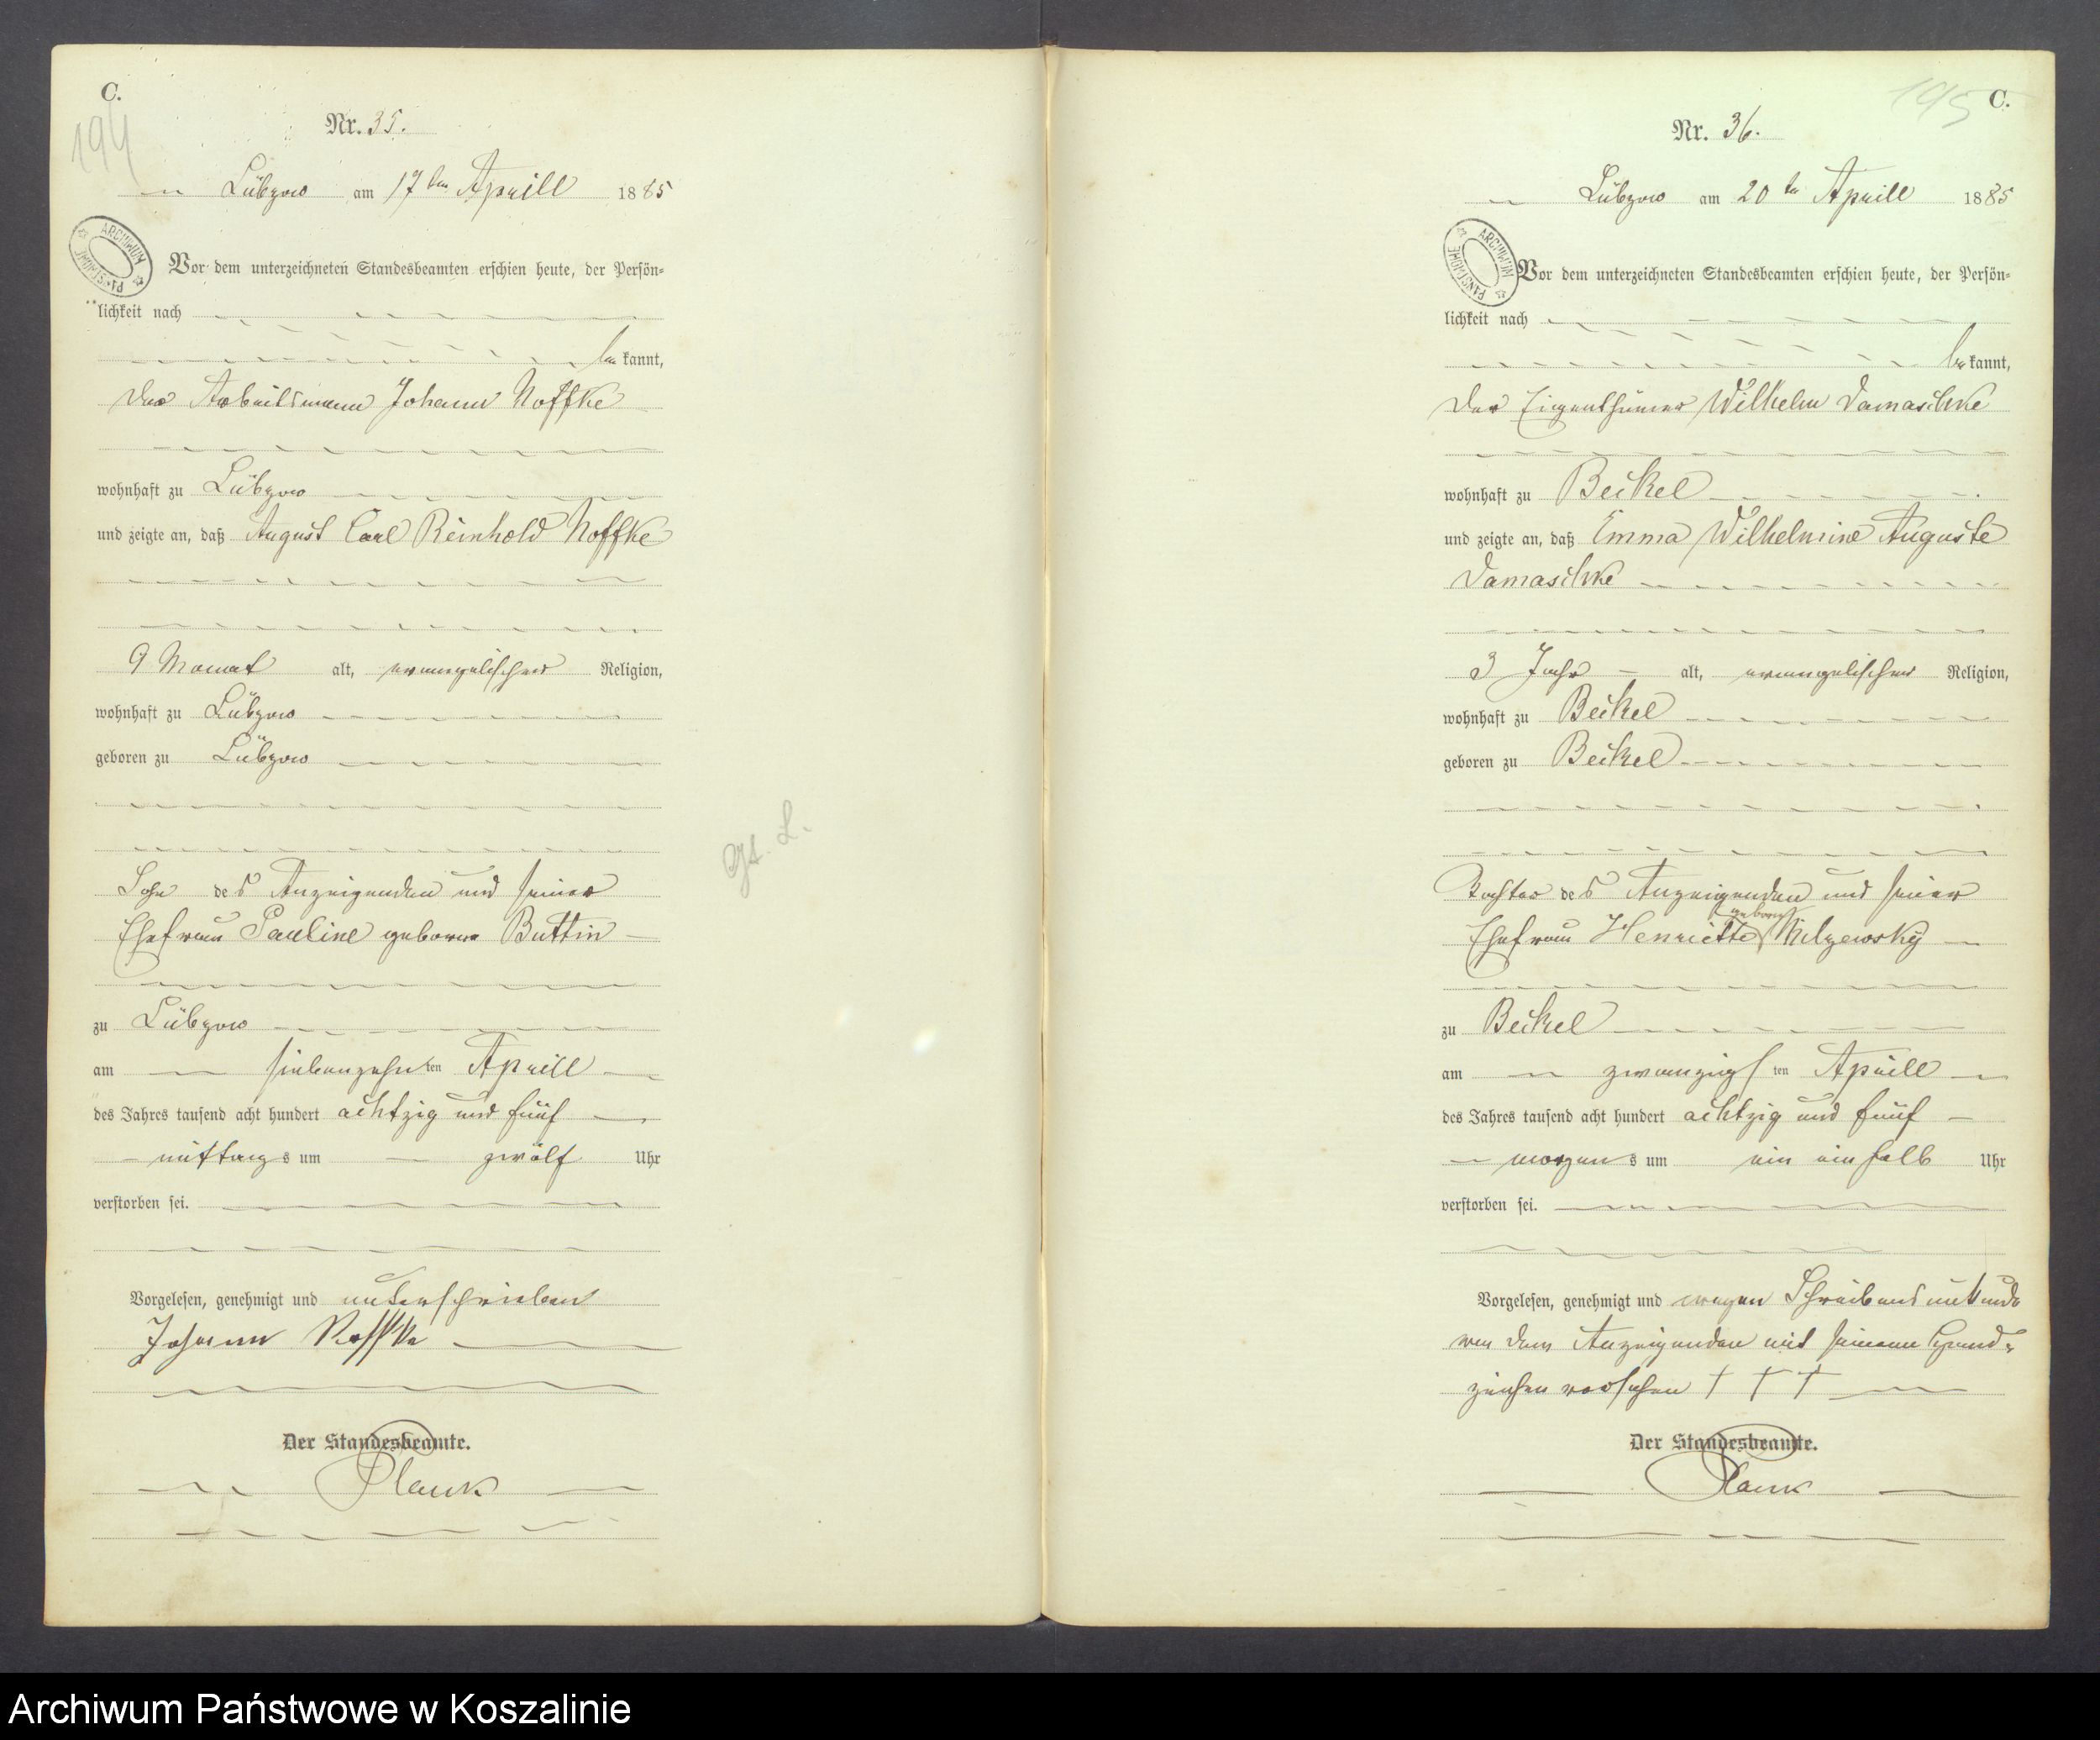 C.
194
Nr. 35.
Lübzow am 17ten Aprill 1885
ARCHIWUM PAŃSTWOWE
Vor dem unterzeichneten Standesbeamten erschien heute, der Persön-
lichkeit nach
be kannt,
der Arbeitsmann Johann Noffke
wohnhaft zu Lübzow
und zeigte an, daß August Carl Reinhold Noffke
9 Monat alt, evangelischer Religion,
wohnhaft zu Lübzow
geboren zu Lübzow
Sohn des Anzeigenden und seiner
Ehefrau Pauline geborne Buttin
zu Lübzow
am siebenzehnten Aprill
des Jahres tausend acht hundert achtzig und fünf
mittags um zwölf Uhr
verstorben sei.
Vorgelesen, genehmigt und unterschrieben
Johann Noffke
Der Standesbeamte.
Planck
195
C.
Nr. 36.
Lübzow am 20ten Aprill 1885
ARCHIWUM PAŃSTWOWE
Vor dem unterzeichneten Standesbeamten erschien heute, der Persön-
lichkeit nach
be kannt,
der Eigenthümer Wilhelm Damaschke
wohnhaft zu Beckel
und zeigte an, daß Emma Wilhelmine Auguste
Damaschke
3 Jahr alt, evangelischer Religion,
wohnhaft zu Beckel
geboren zu Beckel
Tochter des Anzeigenden und seiner
Ehefrau Henriette geborne Milzewsky
zu Beckel
am zwanzigsten Aprill
des Jahres tausend acht hundert achtzig und fünf
morgens um ein ein halb Uhr
verstorben sei.
Vorgelesen, genehmigt und wegen Schreibensunkunde
von dem Anzeigenden mit seinem Hand-
zeichen versehen † † †
Der Standesbeamte.
Planck
Archiwum Państwowe w Koszalinie